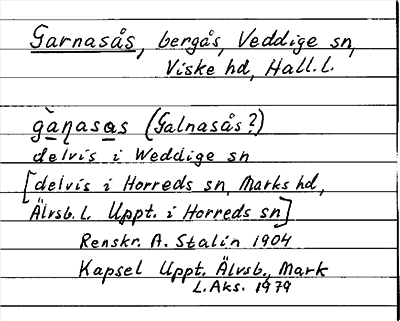 Garnasås, bergås, Veddige sn,
Viske hd, Hall. l.
gàṉasas (Galnasås?)
delvis i Weddige sn
[delvis i Horreds sn, Marks hd,
Älvsb. l. Uppt. i Horreds sn]
Renskr. A. Stalin 1904
Kapsel Uppt. Älvsb., Mark
L. Aks. 1979